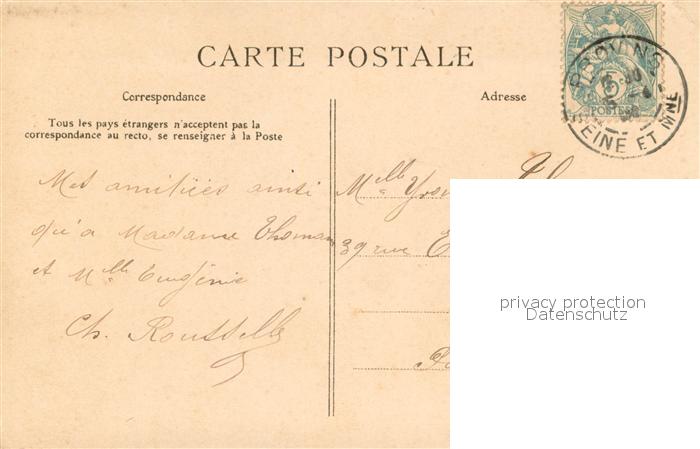 CARTE POSTALE
Correspondance
Tous les pays étrangers n'acceptent pas la
correspondance au recto, se renseigner à la Poste
Adresse
PROVINS
SEINE ET MNE
5
POSTES
Mes amitiés ainsi
qu'à Madame Thomas
et Mlle Eugénie
Ch. Rousselle
Melle
39 rue
privacy protection
Datenschutz